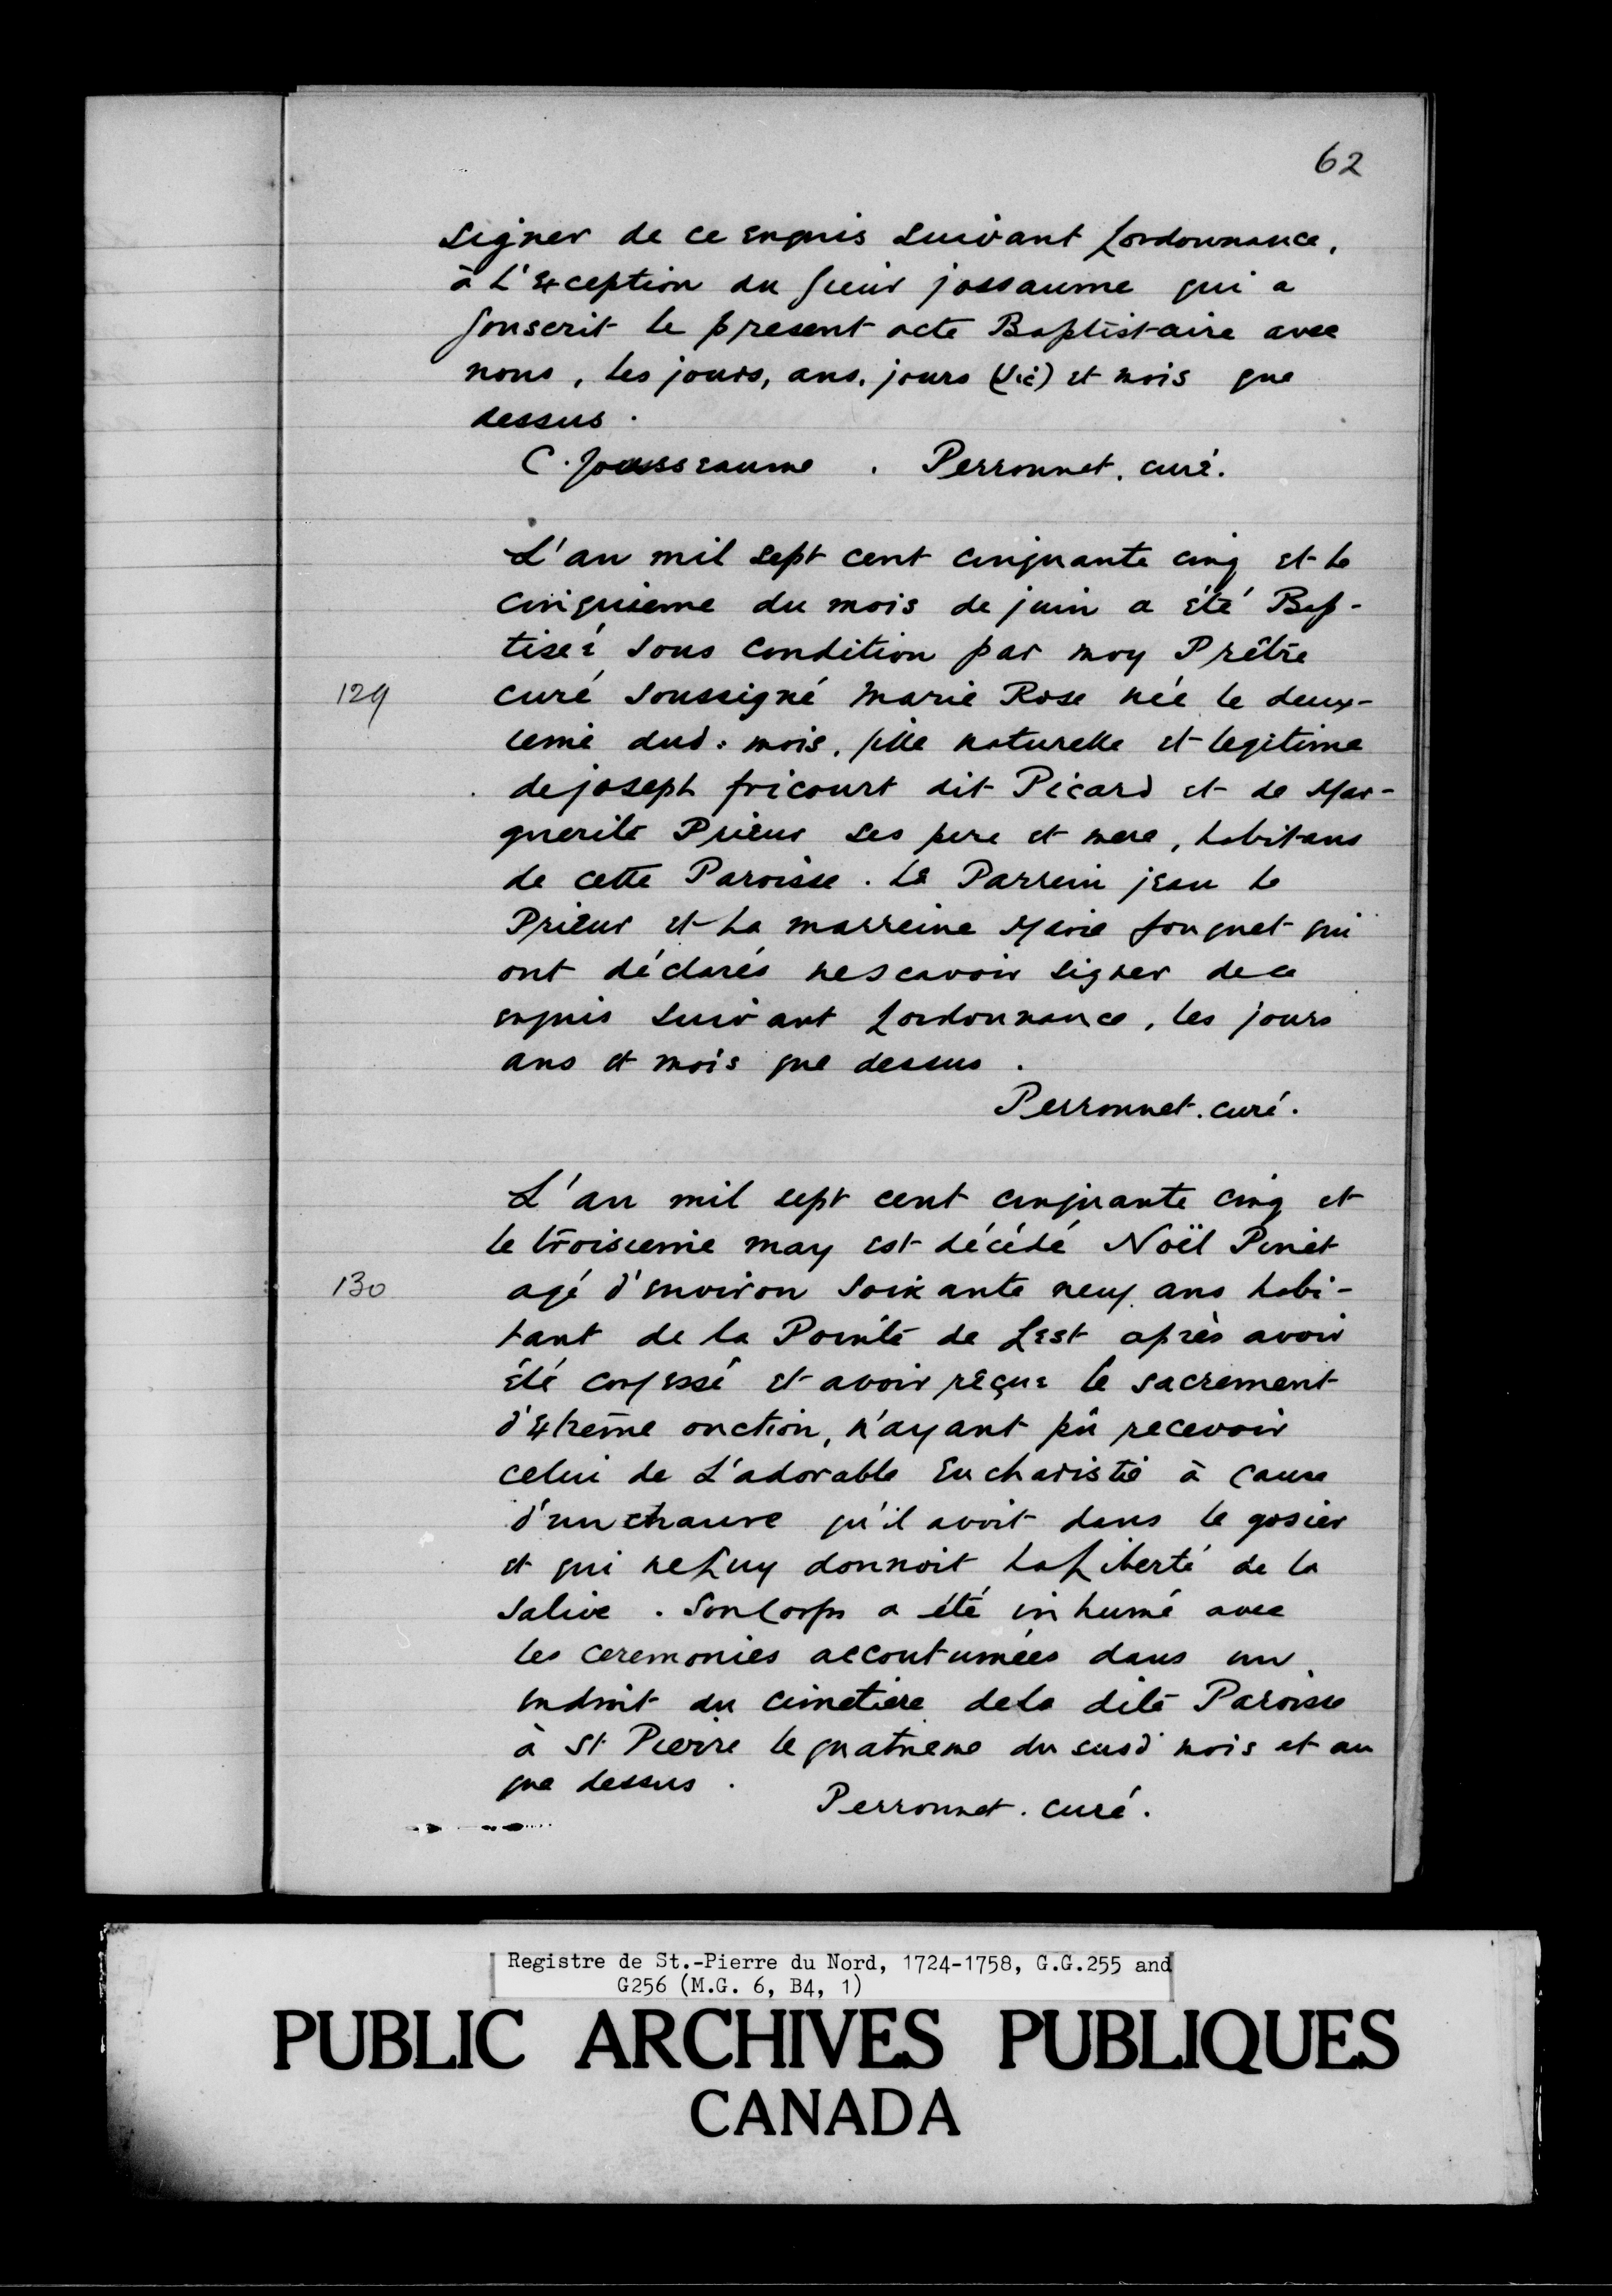 62
signer de ce enquis suivant Lordonnance,
à L'Exception du sieur jossaume qui a
souscrit le present acte Baptistaire avec
nous, les jours, ans, jours (sic) et mois que
dessus.
C. Jousseaume. Perronnet, curé.
L'an mil sept cent cinquante cinq et le
cinquieme du mois de juin a été Bap-
tiseé sous condition par moy Prêtre
129 curé soussigné Marie Rose née le deux-
ieme dud: mois, fille naturelle et legitime
de joseph fricourt dit Picard et de Mar-
guerite Prieur ses pere et mere, habitans
de cette Paroisse. Le Parrein jean le
Prieur et La marreine Marie fouquet qui
ont déclarés nescavoir signer de ce
enquis suivant Lordonnance, les jours
ans et mois que dessus.
Perronnet. curé.
L'an mil sept cent cinquante cinq et
le troisieme may est décédé Noël Pinet
130 agé d'environ soixante neuf ans habi-
tant de la Pointe de Lest après avoir
été confessé et avoir reçue le sacrement
d'Extrême onction, n'ayant pû recevoir
celui de L'adorable Eucharistie à cause
d'un chancre qu'il avoit dans le gosier
et qui neLuy donnoit LaLiberté de la
salive. Son Corps a été inhumé avec
les ceremonies accoutumées dans un
endroit du cimetiere dela dite Paroisse
à St Pierre le quatrieme du susd mois et an
que dessus.
Perronnet. curé.
Registre de St.-Pierre du Nord, 1724-1758, G.G.255 and
G256 (M.G. 6, B4, 1)
PUBLIC ARCHIVES PUBLIQUES
CANADA